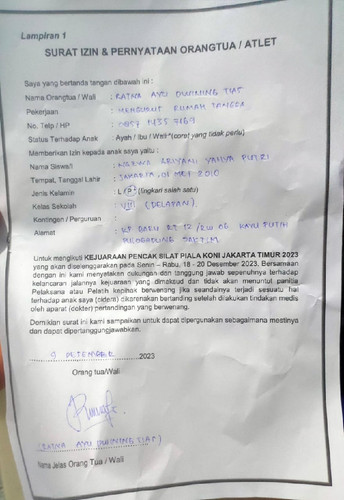 Lampiran 1
SURAT IZIN & PERNYATAAN ORANGTUA / ATLET
Saya yang bertanda tangan dibawah ini :
Nama Orangtua / Wali : RATNA AYU DWINING TIAS
Pekerjaan : MENGURUS RUMAH TANGGA
No. Telp / HP :
Status Terhadap Anak : Ayah / Ibu / Wali*(coret yang tidak perlu)
Memberikan izin kepada anak saya yaitu :
Nama Siswa/i : YAHYA PUTRI
Tempat, Tanggal Lahir : JAKARTA, 01 MEI 2010
Jenis Kelamin : L / P*) (lingkari salah satu)
Kelas Sekolah : VIII (DELAPAN)
Kontingen / Perguruan :
Alamat : RT 12 /RW 06 KAYU PUTIH
PULOGADUNG JAKTIM
Untuk mengikuti KEJUARAAN PENCAK SILAT PIALA KONI JAKARTA TIMUR 2023
yang akan diselenggarakan pada Senin – Rabu, 18 - 20 Desember 2023, Bersamaan
dengan ini kami menyatakan dukungan dan tanggung jawab sepenuhnya terhadap
kelancaran jalannya kejuaraan yang dimaksud dan tidak akan menuntut panitia
Pelaksana atau Pelatih kepihak berwenang jika seandainya terjadi sesuatu hal
terhadap anak saya (cidera) dikarenakan bertanding setelah dilakukan tindakan medis
oleh aparat (dokter) pertandingan yang berwenang.
Demikian surat ini kami sampaikan untuk dapat dipergunakan sebagaimana mestinya
dan dapat dipertanggungjawabkan.
9 DESEMBER 2023
Orang tua/Wali
(RATNA AYU DWINING TIAS)
Nama Jelas Orang Tua / Wali